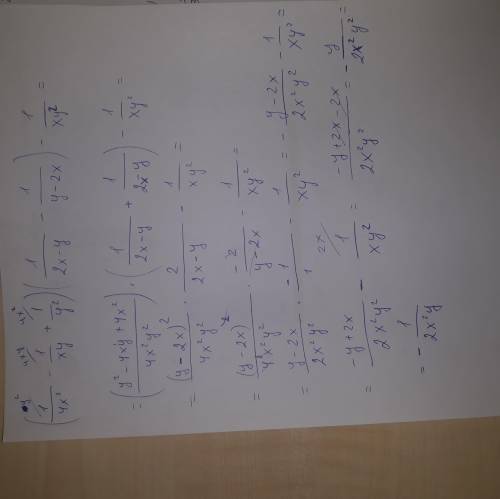 (1/4x² - 1/xy + 1/y²)(1/2x-y - 1/y-2x) - 1/xy² =
= (y²-4xy+4x²/4x²y²) · (1/2x-y + 1/2x-y) - 1/xy² =
= (y-2x)²/4x²y² · 2/2x-y - 1/xy² =
= (y-2x)²/4x²y² · -2/y-2x - 1/xy² =
= y-2x/2x²y² · -1/1 - 1/xy² = - y-2x/2x²y² - 1/xy² =
= -y+2x/2x²y² - 1/xy² = -y+2x-2x/2x²y² = - y/2x²y² =
= - 1/2x²y